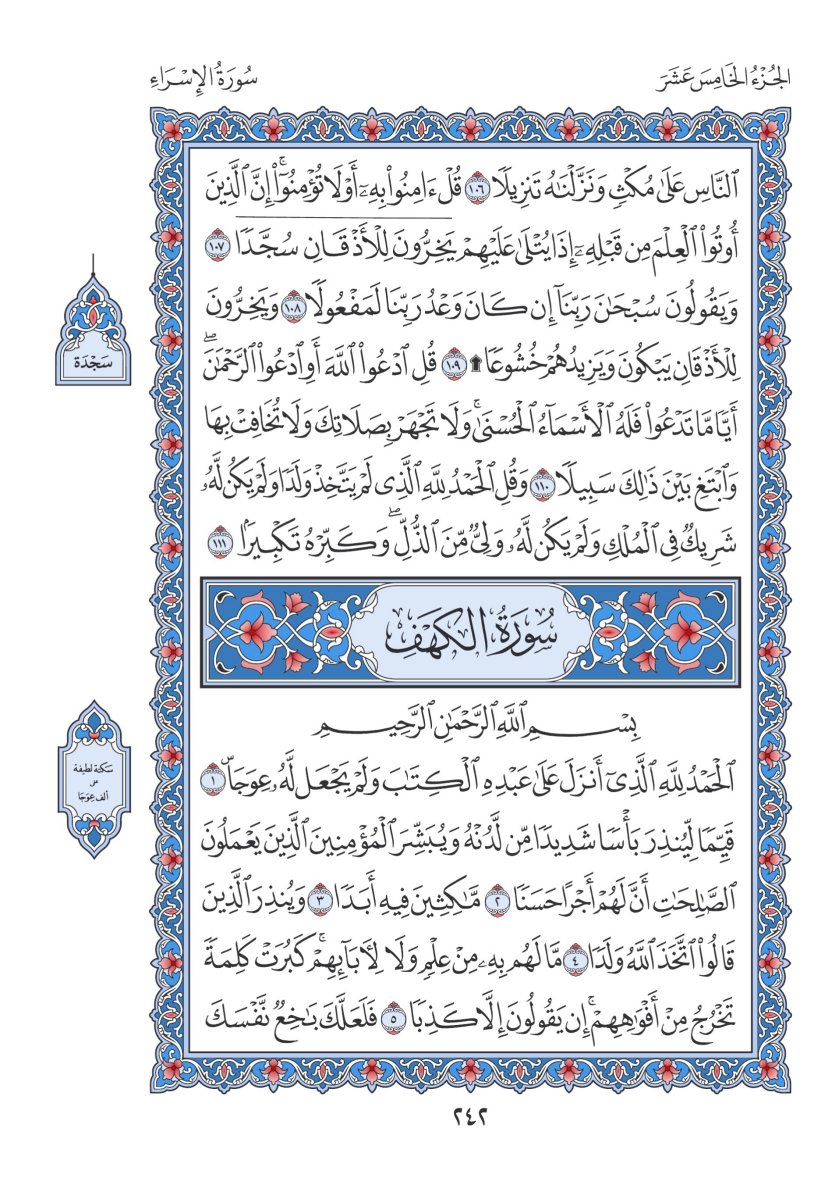 الجُزْءُ الخَامِسَ عَشَرَ
سُورَةُ الإِسْرَاءِ
ٱلنَّاسِ عَلَىٰ مُكْثٖ وَنَزَّلْنَٰهُ تَنزِيلٗا ١٠٦ قُلْ ءَامِنُواْ بِهِۦٓ أَوْ لَا تُؤْمِنُوٓاْۚ إِنَّ ٱلَّذِينَ
أُوتُواْ ٱلْعِلْمَ مِن قَبْلِهِۦٓ إِذَا يُتْلَىٰ عَلَيْهِمْ يَخِرُّونَ لِلْأَذْقَانِ سُجَّدٗا ١٠٧
وَيَقُولُونَ سُبْحَٰنَ رَبِّنَآ إِن كَانَ وَعْدُ رَبِّنَا لَمَفْعُولٗا ١٠٨ وَيَخِرُّونَ
لِلْأَذْقَانِ يَبْكُونَ وَيَزِيدُهُمْ خُشُوعٗا۩ ١٠٩ قُلِ ٱدْعُواْ ٱللَّهَ أَوِ ٱدْعُواْ ٱلرَّحْمَٰنَۖ
أَيّٗا مَّا تَدْعُواْ فَلَهُ ٱلْأَسْمَآءُ ٱلْحُسْنَىٰۚ وَلَا تَجْهَرْ بِصَلَاتِكَ وَلَا تُخَافِتْ بِهَا
وَٱبْتَغِ بَيْنَ ذَٰلِكَ سَبِيلٗا ١١٠ وَقُلِ ٱلْحَمْدُ لِلَّهِ ٱلَّذِي لَمْ يَتَّخِذْ وَلَدٗا وَلَمْ يَكُن لَّهُۥ
شَرِيكٞ فِي ٱلْمُلْكِ وَلَمْ يَكُن لَّهُۥ وَلِيّٞ مِّنَ ٱلذُّلِّۖ وَكَبِّرْهُ تَكْبِيرَۢا ١١١
سَجْدَة
سُورَةُ الكَهْفِ
بِسْمِ ٱللَّهِ ٱلرَّحْمَٰنِ ٱلرَّحِيمِ
ٱلْحَمْدُ لِلَّهِ ٱلَّذِيٓ أَنزَلَ عَلَىٰ عَبْدِهِ ٱلْكِتَٰبَ وَلَمْ يَجْعَل لَّهُۥ عِوَجَاۜ ١
قَيِّمٗا لِّيُنذِرَ بَأْسٗا شَدِيدٗا مِّن لَّدُنْهُ وَيُبَشِّرَ ٱلْمُؤْمِنِينَ ٱلَّذِينَ يَعْمَلُونَ
ٱلصَّٰلِحَٰتِ أَنَّ لَهُمْ أَجْرًا حَسَنٗا ٢ مَّٰكِثِينَ فِيهِ أَبَدٗا ٣ وَيُنذِرَ ٱلَّذِينَ
قَالُواْ ٱتَّخَذَ ٱللَّهُ وَلَدٗا ٤ مَّا لَهُم بِهِۦ مِنْ عِلْمٖ وَلَا لِأٓبَآئِهِمْۚ كَبُرَتْ كَلِمَةٗ
تَخْرُجُ مِنْ أَفْوَٰهِهِمْۚ إِن يَقُولُونَ إِلَّا كَذِبٗا ٥ فَلَعَلَّكَ بَٰخِعٞ نَّفْسَكَ
سكتة لطيفة
على
ألف عِوَجَا
٢٤٢